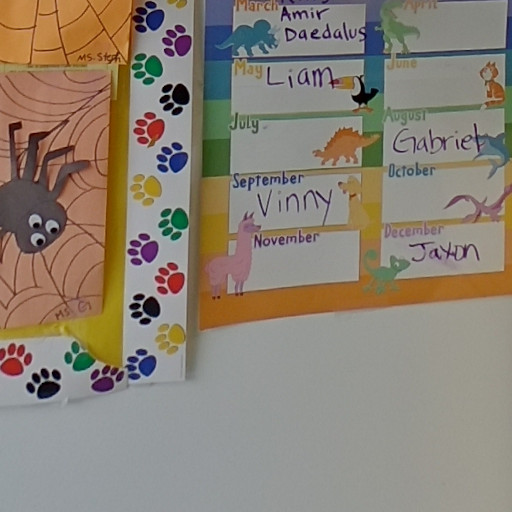 March
Amir
Daedalus
April
May
Liam
June
July
August
Gabriel
September
Vinny
October
November
December
Jaxon
Ms. Stefi
Ms. G